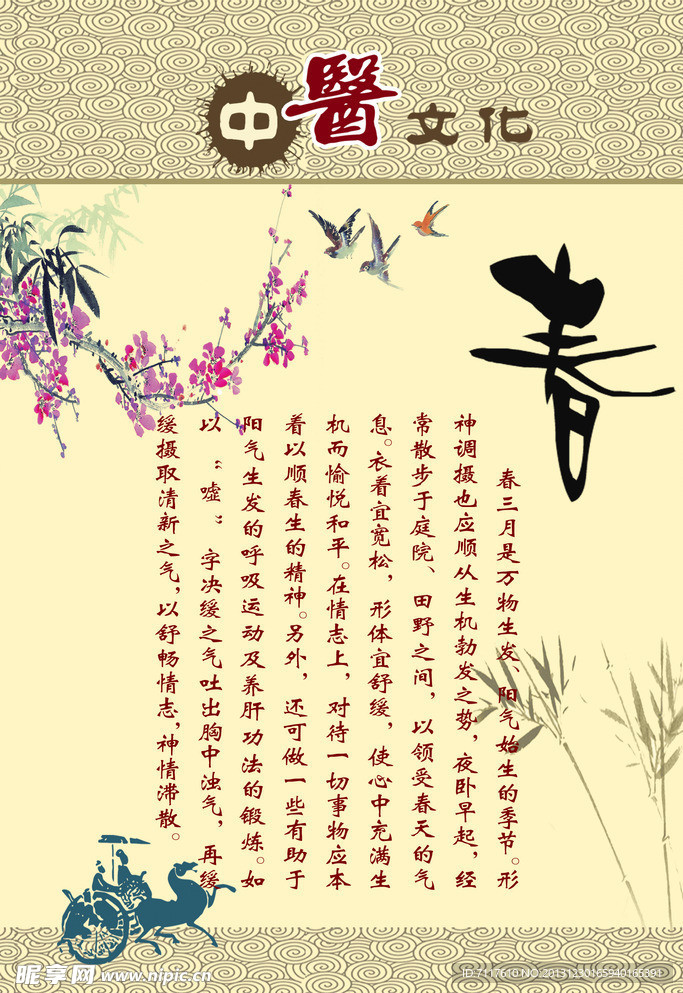 中醫文化
春
春三月是万物生发、阳气始生的季节。形
神调摄也应顺从生机勃发之势，夜卧早起，经
常散步于庭院、田野之间，以领受春天的气
息。衣着宜宽松，形体宜舒缓，使心中充满生
机而愉悦和平。在情志上，对待一切事物应本
着以顺春生的精神。另外，还可做一些有助于
阳气生发的呼吸运动及养肝功法的锻炼。如
以“嘘”字决缓之气吐出胸中浊气，再缓
缓摄取清新之气，以舒畅情志，神情滞散。
昵享网 www.nipic.cn
ID:7117610 NO:20131230165940165391